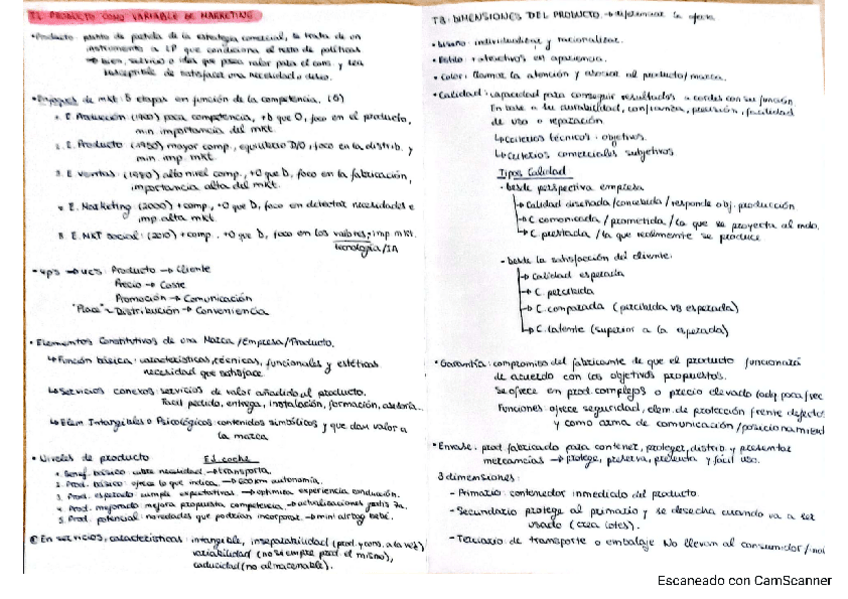 T.2 PRODUCTO COMO VARIABLE DE MARKETING
•Producto: punto de partida de la estrategia comercial, se trata de un
instrumento a LP que condiciona el resto de políticas
→ bien, servicio o idea que posea valor para el cons. y sea
susceptible de satisfacer una necesidad o deseo.
•Enfoques de mkt: 5 etapas en función de la competencia. (5)
1. E. Producción (1900) poca competencia, +D que O, foco en el producto,
min. importancia del mkt.
2. E. Producto (1950) mayor comp., equilibrio D/O, foco en la distrib. y
min. imp. mkt.
3. E ventas: (1980) alto nivel comp., +O que D, foco en la fabricación,
importancia alta del mkt.
4. E. Marketing (2000) +comp., +O que D, foco en detectar necesidades e
imp. alta mkt.
5. E. MKT Social: (2010) +comp., +O que D, foco en los valores, imp mkt.
tecnología/IA
- 4p's → 4C's: Producto → Cliente
Precio → Coste
Promoción → Comunicación
"Place" ~ Distribución → Conveniencia
• Elementos Constitutivos de una Marca/Empresa/Producto.
↳ Función básica: características, técnicas, funcionales y estéticas
necesidad que satisface.
↳ Servicios conexos: servicios de valor añadido al producto.
Facil pedido, entrega, instalación, formación, asesoría...
↳ Elem Intangibles o Psicológicos contenidos simbólicos y que dan valor a
la marca
• Niveles de producto EJ. coche
1. Benef. básico: cubre necesidad → transporta.
2. Prod. básico: ofrece lo que indica → 600km autonomía.
3. Prod. esperado: cumple expectativas → optimiza experiencia conducción.
4. Prod. mejorado mejora propuesta competencia → actualizaciones gratis
5. Prod. potencial: novedades que podrían incorporar → mini airbag bebé.
En servicios, características: intangible, inseparabilidad (prod. y cons. a la vez)
variabilidad (no siempre prod. el mismo),
caducidad (no almacenable).
T3: DIMENSIONES DEL PRODUCTO. → diferenciar la oferta
• Diseño: individualizar y racionalizar.
• Estilo: atractivos en apariencia.
• Color: llamar la atención y asociar al producto/marca.
•Calidad: capacidad para conseguir resultados acordes con su función
En base a su durabilidad, confianza, precisión, facilidad
de uso o reparación
↳ Criterios técnicos: objetivos.
↳ Criterios comerciales subjetivos.
Tipos Calidad
- Desde perspectiva empresa
→ Calidad diseñada/concebida/responde obj. producción
→ C comunicada/prometida/la que se proyecta al mdo.
→ C. prestada/la que realmente se produce
- Desde la satisfacción del cliente:
→ Calidad esperada
→ C. percibida
→ C. comparada (percibida VS esperada)
→ C. latente (superior a la esperada)
• Garantía: compromiso del fabricante de que el producto funcionará
de acuerdo con los objetivos propuestos.
Se ofrece en prod. complejos o precio elevado (adq. poca frec
Funciones: ofrece seguridad, elem. de protección frente defecto
y como arma de comunicación/posicionamient
• Envase: prod fabricado para contener, proteger, distrib. y presentar
mercancías → protege, preserva, presenta y fácil uso.
3 dimensiones:
- Primario: contenedor inmediato del producto.
- Secundario protege al primario y se desecha cuando va a ser
usado (crea lotes).
- Terciario: de transporte o embalaje No llevan al consumidor
Escaneado con CamScanner